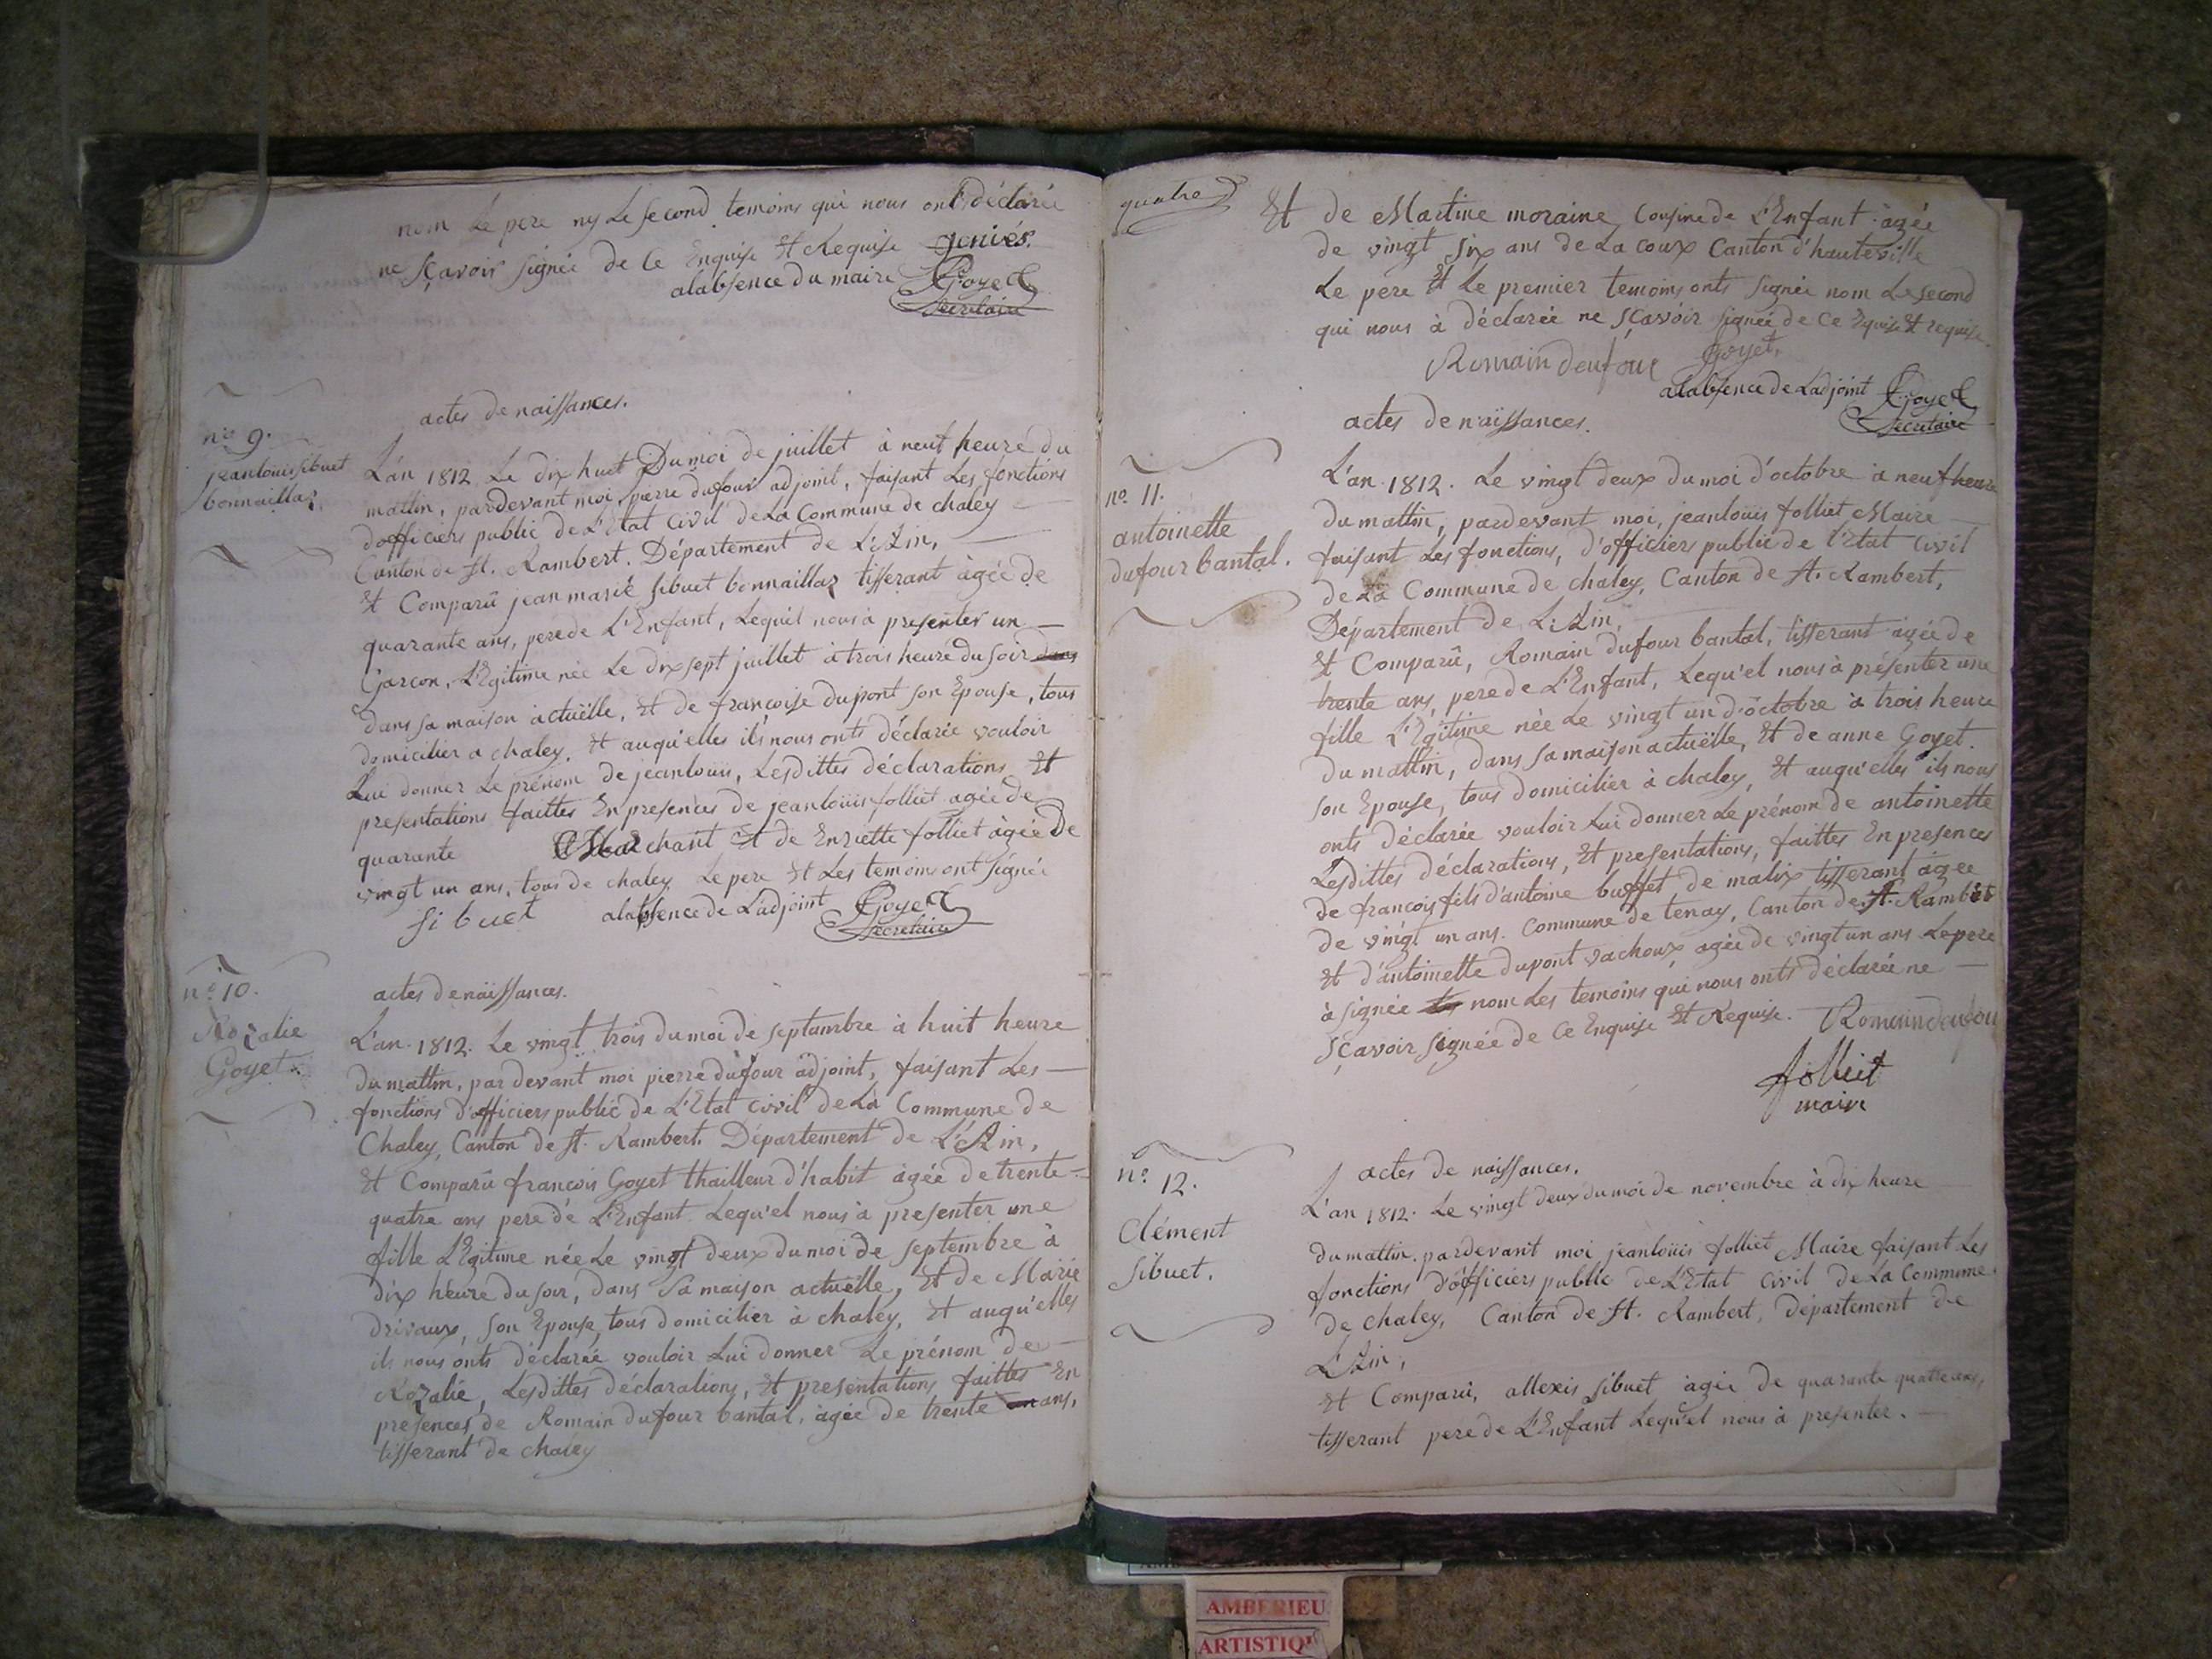 nom Le pere ny Le second temoins qui nous ont déclarée
ne sçavoir signée de Ce Enquise Et Requise geniés.
alabsence du maire Goyet
Secretaire
n.o 9.
jeanlouis sibuet
bonnaillaz
actes de naissances.
L'an 1812 Le dix huit Du moi de juillet à neuf heure du
mattin, pardevant moi pierre dufour adjoint, faisant Les fonctions
dofficiers public de L'Etat Civil de La Commune de chaley
Canton de St. Rambert. Département de L'Ain,
Et Comparû jean marie sibuet bonnaillaz tisserant âgée de
quarante ans, pere de L'Enfant, Lequ'el nous à presenter un
Garcon, L'Egitime née Le dix sept juillet à trois heure du soir dans
dans sa maison actuëlle, Et de francoise dupont son Epouse, tous
domicilier a chaley, Et auqu'elles ils nous onts déclarée vouloir
Lui donner Le prénom de jeanlouis, Lesdittes déclarations Et
presentations faittes En presences de jeanlouis folliet agée de
quarante Marchant Et de Enriette folliet âgée De
vingt un ans, tous de chaley Le pere Et Les temoins ont signée
sibuet alabsence de Ladjoint Goyet
Secretaire
n.o 10.
Rozalie
Goyet
actes de naissances.
L'an 1812. Le vingt trois du moi de septambre à huit heure
du mattin, par devant moi pierre dufour adjoint, faisant Les
fonctions d'officiers public de L'Etat Civil de La Commune de
Chaley, Canton de St. Rambert. Département de L'Ain,
Et Comparû francois Goyet thailleur d'habit agée de trente
quatre ans pere de L'Enfant Lequ'el nous à presenter une
fille L'Egitime née Le vingt deux du moi de septembre à
dix heure du soir, dans Sa maison actuëlle, Et de Marie
drivaux, son Epouse, tous domicilier à chaley, Et auqu'elles
ils nous onts déclarée vouloir Lui donner Le prénom de
Rozalie, Lesdittes déclarations, Et presentations faittes En
presences de Romain dufour bantal, âgée de trente un ans,
tisserant de chaley
quatre
Et de Martine moraine Cousine de L'Enfant agée
de vingt six ans de La coux Canton d'hauteville
Le pere Et Le premier temoins onts signée nom Le second
qui nous à déclarée ne sçavoir signée de Ce Equise Et requise.
Romain dufour Goyet
alabsence de Ladjoint Goyet
Secretaire
n.o 11.
antoinette
dufour bantal.
actes de naissances.
L'an 1812. Le vingt deux du moi d'octobre à neuf heure
du mattin, pardevant moi, jeanlouis folliet Maire
faisant Les fonctions, d'officiers public de l'Etat Civil
de La Commune de chaley, Canton de St. Rambert,
Département de L'Ain,
Et Comparû, Romain dufour bantal, tisserant agée de
trente ans, pere de L'Enfant, Lequ'el nous à présenter une
fille L'Egitime née Le vingt un d'octobre à trois heure
du mattin, dans sa maison actuëlle, Et de anne Goyet
son Epouse, tous domicilier à chaley, Et auqu'elles ils nous
onts déclarée vouloir Lui donner Le prénom de antoinette
Lesdittes déclarations, Et presentations, faittes En presences
de francois fils d'antoine buffet de malix tisserant agée
de vingt un ans. Commune de tenay, Canton de St. Rambert
Et d'antoinette dupont vachoux agée de vingt un ans Le pere
à signée Les nom Les temoins qui nous onts déclarée ne
sçavoir signée de Ce Enquise Et Requise. Romain dufour
folliet
maire
n.o 12.
Clément
Sibuet.
actes de naissances.
L'an 1812. Le vingt deux du moi de novembre à dix heure
du mattin. pardevant moi jeanlouis folliet Maire faisant Les
fonctions d'officiers public de L'Etat Civil de La Commune
de chaley, Canton de St. Rambert, département de
L'Ain,
Et Comparû, allexis sibuet agée de quarante quatre ans,
tisserant pere de L'Enfant Lequ'el nous à presenter.
AMBERIEU
ARTISTIQU